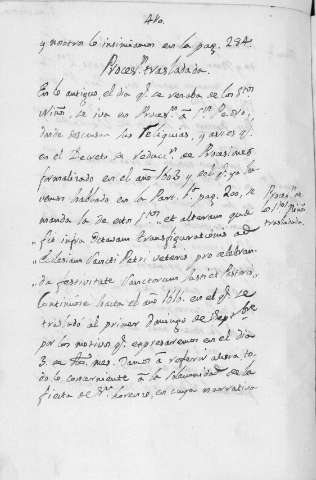 410.
y nosotros lo insinuamos en la pag. 284.
Proces.n trasladada.
En lo antiguo, el dia q.e se rezaba de los S.tos
Niños, se iva en Proces.n à S.n Pedro,
donde descansan las Reliquias, y assi es q.e
en el Decreto de reducc.n de Procesiones
formalizado en el año 1602 y del q.e ya ha-
vemos hablado en la Part. 1.a pag. 200, se
manda la de estos S.tos et alteram quæ
fit infra octavam transfigurationis ad
Eclesiam Sancti Petri veteris pro celebran-
da festivitate Sanctorum Justi et Pastoris.
Continuose hasta el año 1610. en el q.e se
trasladó al primer Domingo de Sep.bre
por los motivos q.e expresaremos en el dia
3. de mes. Vamos à referir ahora to-
do lo concerniente à la Solemnidad de la
fiesta de S.n Lorenzo, en cuya narrativa
Proces.n de
los S.tos Niños
trasladada.